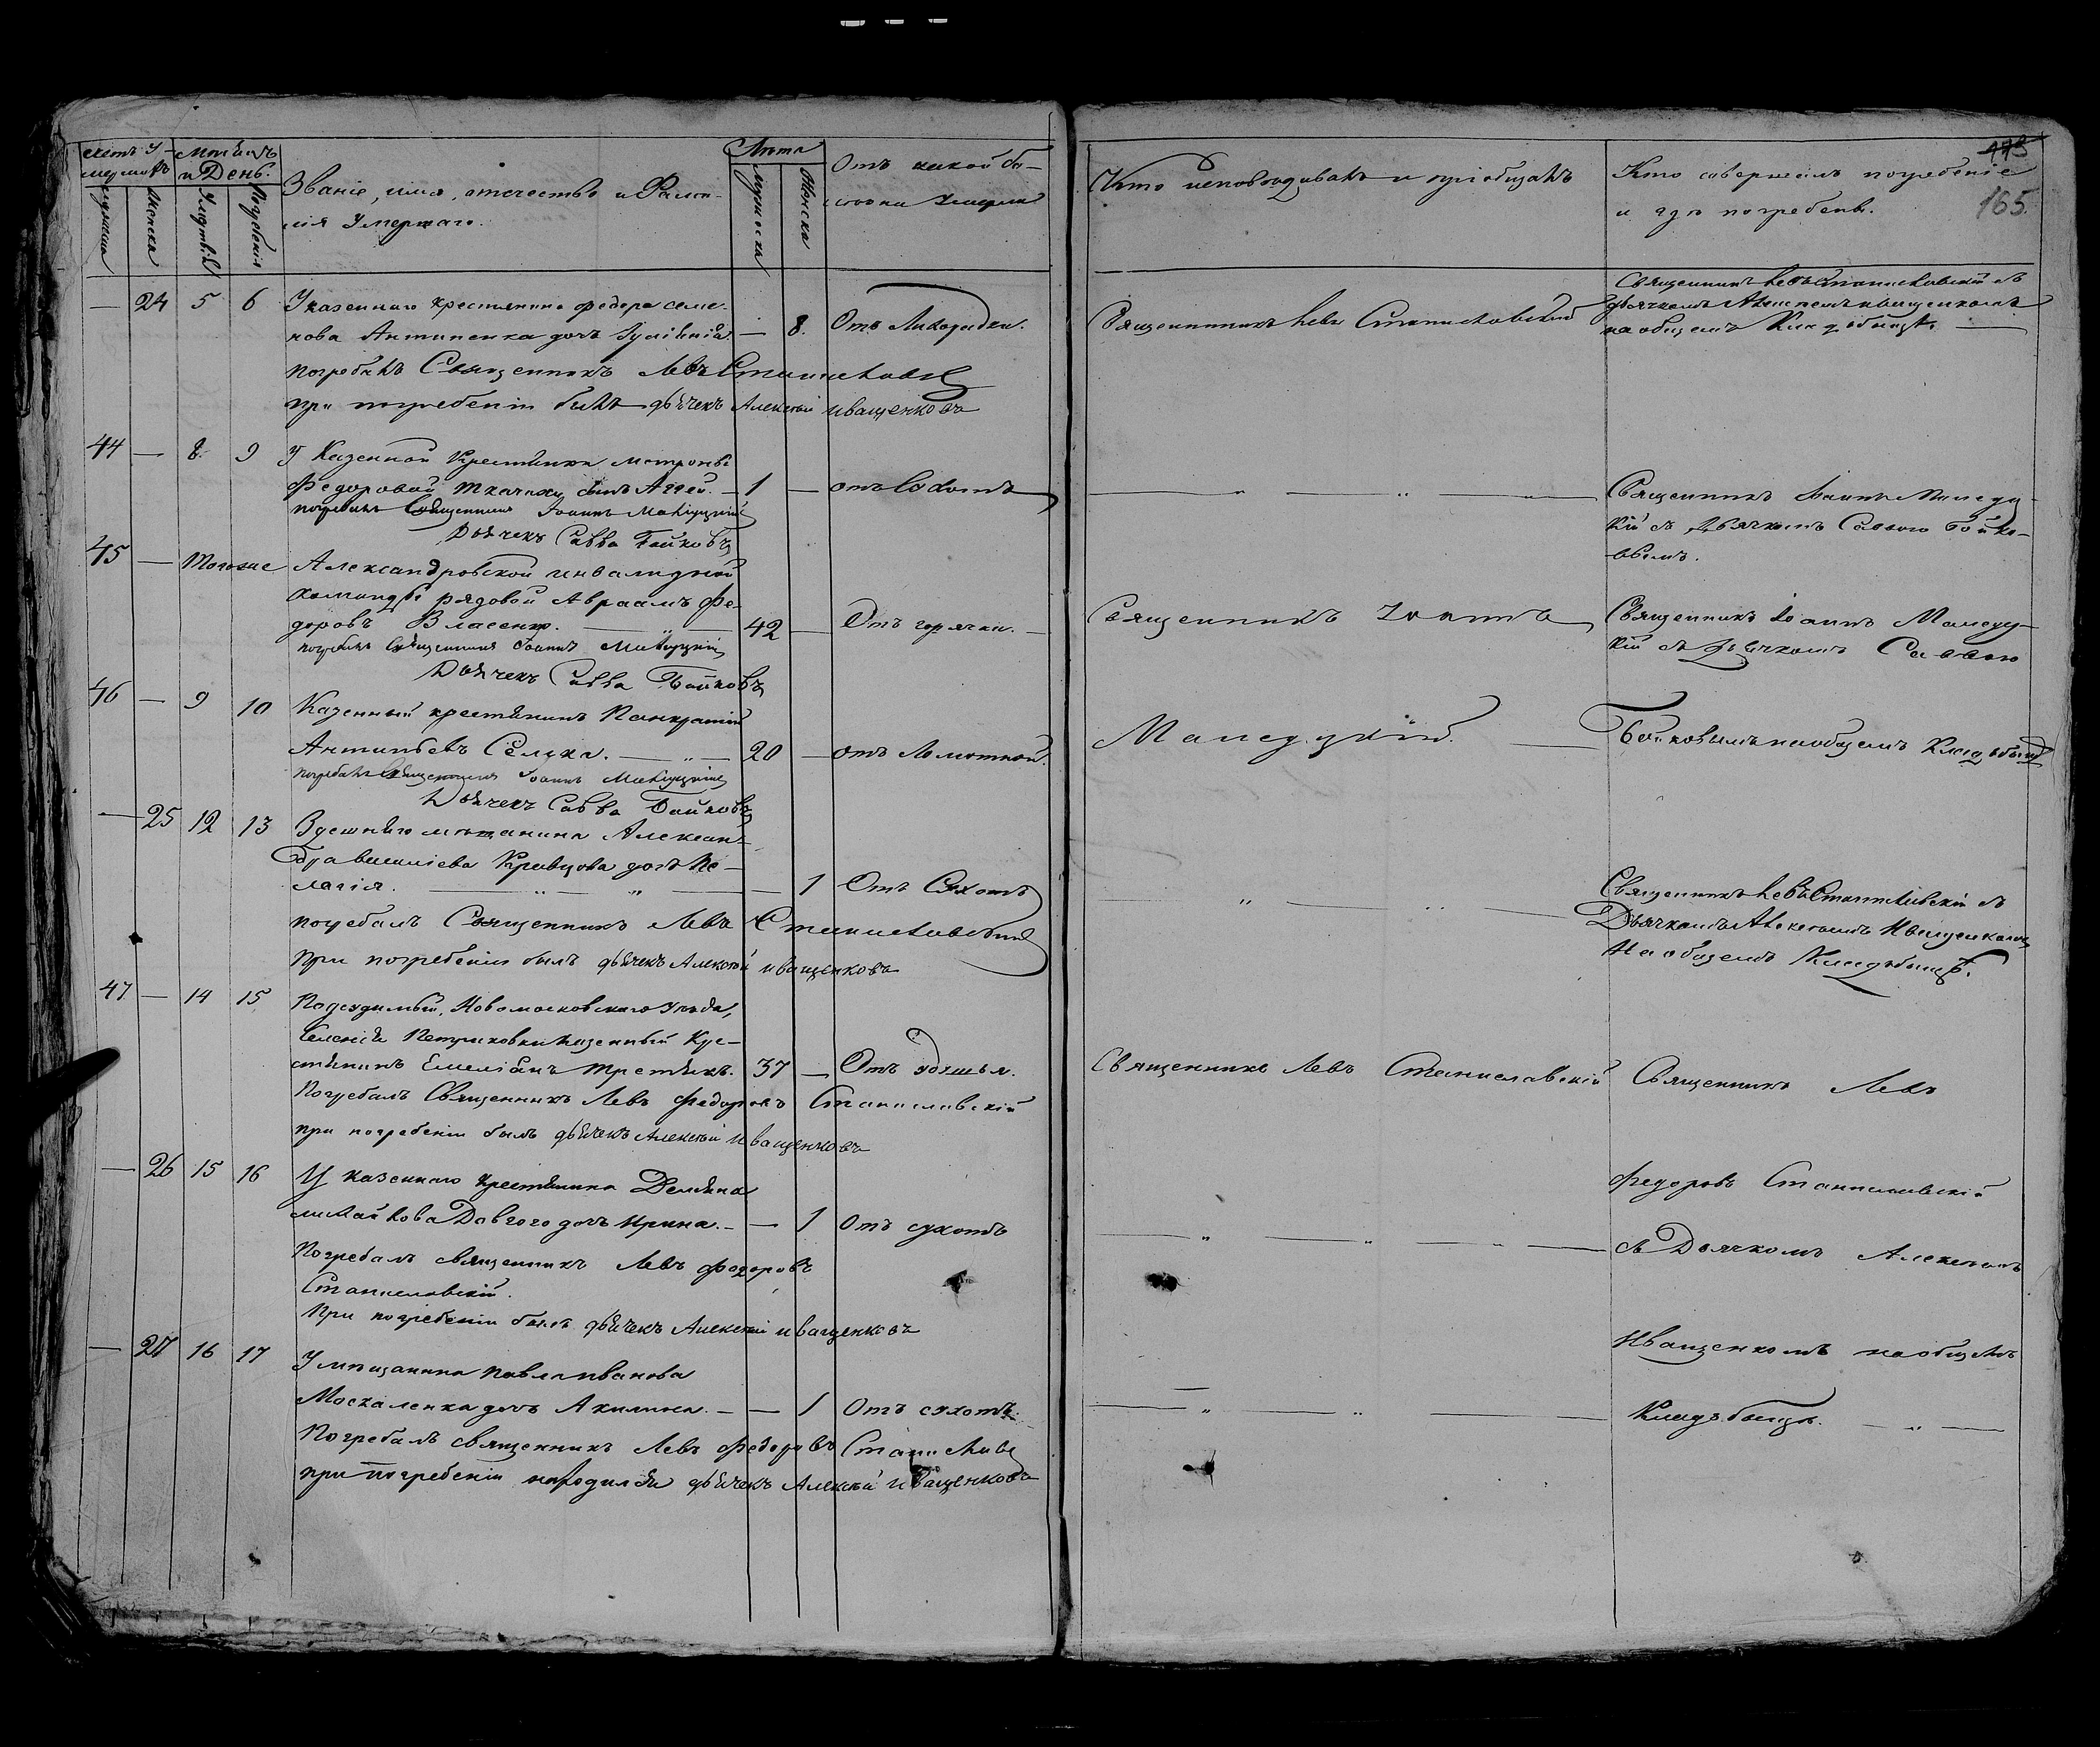 Счетъ У-
мершихъ
Мѣсяцъ
и День.
мужеска
женска
Смертиый
Погребенія
Званіе, имя, отчество и Фами-
лія Умершаго.
Лѣта
мужеска
женска
Отъ какой бо-
лѣзни Умерли
Кто исповѣдывалъ и пріобщалъ
Кто совершалъ погребеніе
и гдѣ погребенъ.
165
— 24 5 6 У казеннаго крестьянина Федора Семе-
нова Антипенка дочь — 8. Отъ Лихорадки.
Священникъ Левъ Станиславскій
Священникъ Левъ Станиславскій съ
дьячкомъ Алексѣемъ Иващенкомъ
на общемъ Кладбищѣ. —
погребалъ Священникъ Левъ Станиславскій
при погребеніи былъ дьячекъ Алексѣй Иващенковъ
44 — 8. 9 У Казенной Крестьянки Матроны
Федоровой Ткачихи сынъ Аггей. — 1 — отъ Сохотъ
погребалъ Священникъ Іоаннъ Малецкій
Дьячекъ Савва Бойковъ
Священникъ Іоаннъ Малецкій
съ Дьячкомъ Саввою Бойко-
вымъ.
45 — Тогоже Александровской инвалидной
команды рядовой Авраамъ Фе-
доровъ Власенко. — 42 — Отъ горячки. —
погребалъ Священникъ Іоаннъ Малецкій
Дьячекъ Савва Бойковъ
Священникъ Іоаннъ
Священникъ Іоаннъ
съ Дьячкомъ Саввою
46 — 9 10 Казенный крестьянинъ Панкратій
Антипьевъ Селиха. — 20 — отъ Ломотной.
погребалъ Священникъ Іоаннъ Малецкій
Дьячекъ Савва Бойковъ
Бойковымъ на общемъ Кладбищѣ
— 25 12 13 Здешняго мѣщанина Алексан-
дра Василіева Кравцова дочь Пе-
лагія. — — 1 Отъ Сухотъ
погребалъ Священникъ Левъ Станиславскій
При погребеніи былъ дьячекъ Алексѣй Иващенковъ
Священникъ Левъ Станиславскій съ
Дьячкомъ Алексѣемъ Иващенкомъ
На общемъ Кладбищѣ.
47 — 14 15 Подсудимый, Новомосковскаго Уѣзда,
Селенія Петриковки казенный Кре-
стьянинъ Емеліанъ Третьякъ. 37 — Отъ удушья.
Священникъ Левъ Станиславскій
Священникъ Левъ
Погребалъ Священникъ Левъ Федоровъ Станиславскій
при погребеніи былъ дьячекъ Алексѣй Иващенковъ
— 26 15 16 У казеннаго крестьянина Демьяна
Михайлова Довгого дочь Ирина. — — 1 Отъ сухотъ
Погребалъ священникъ Левъ Федоровъ
Станиславскій.
При погребеніи былъ дьячекъ Алексѣй Иващенковъ
Федоровъ Станиславскій
съ Дьячкомъ Алексѣемъ
— 27 16 17 У мѣщанина Павла Иванова
Москаленка дочь Акилина. — — 1 Отъ сухотъ.
Погребалъ священникъ Левъ Федоровъ Станиславскій
при погребеніи находился дьячекъ Алексѣй Иващенковъ
Иващенкомъ на общемъ
Кладбищѣ. —